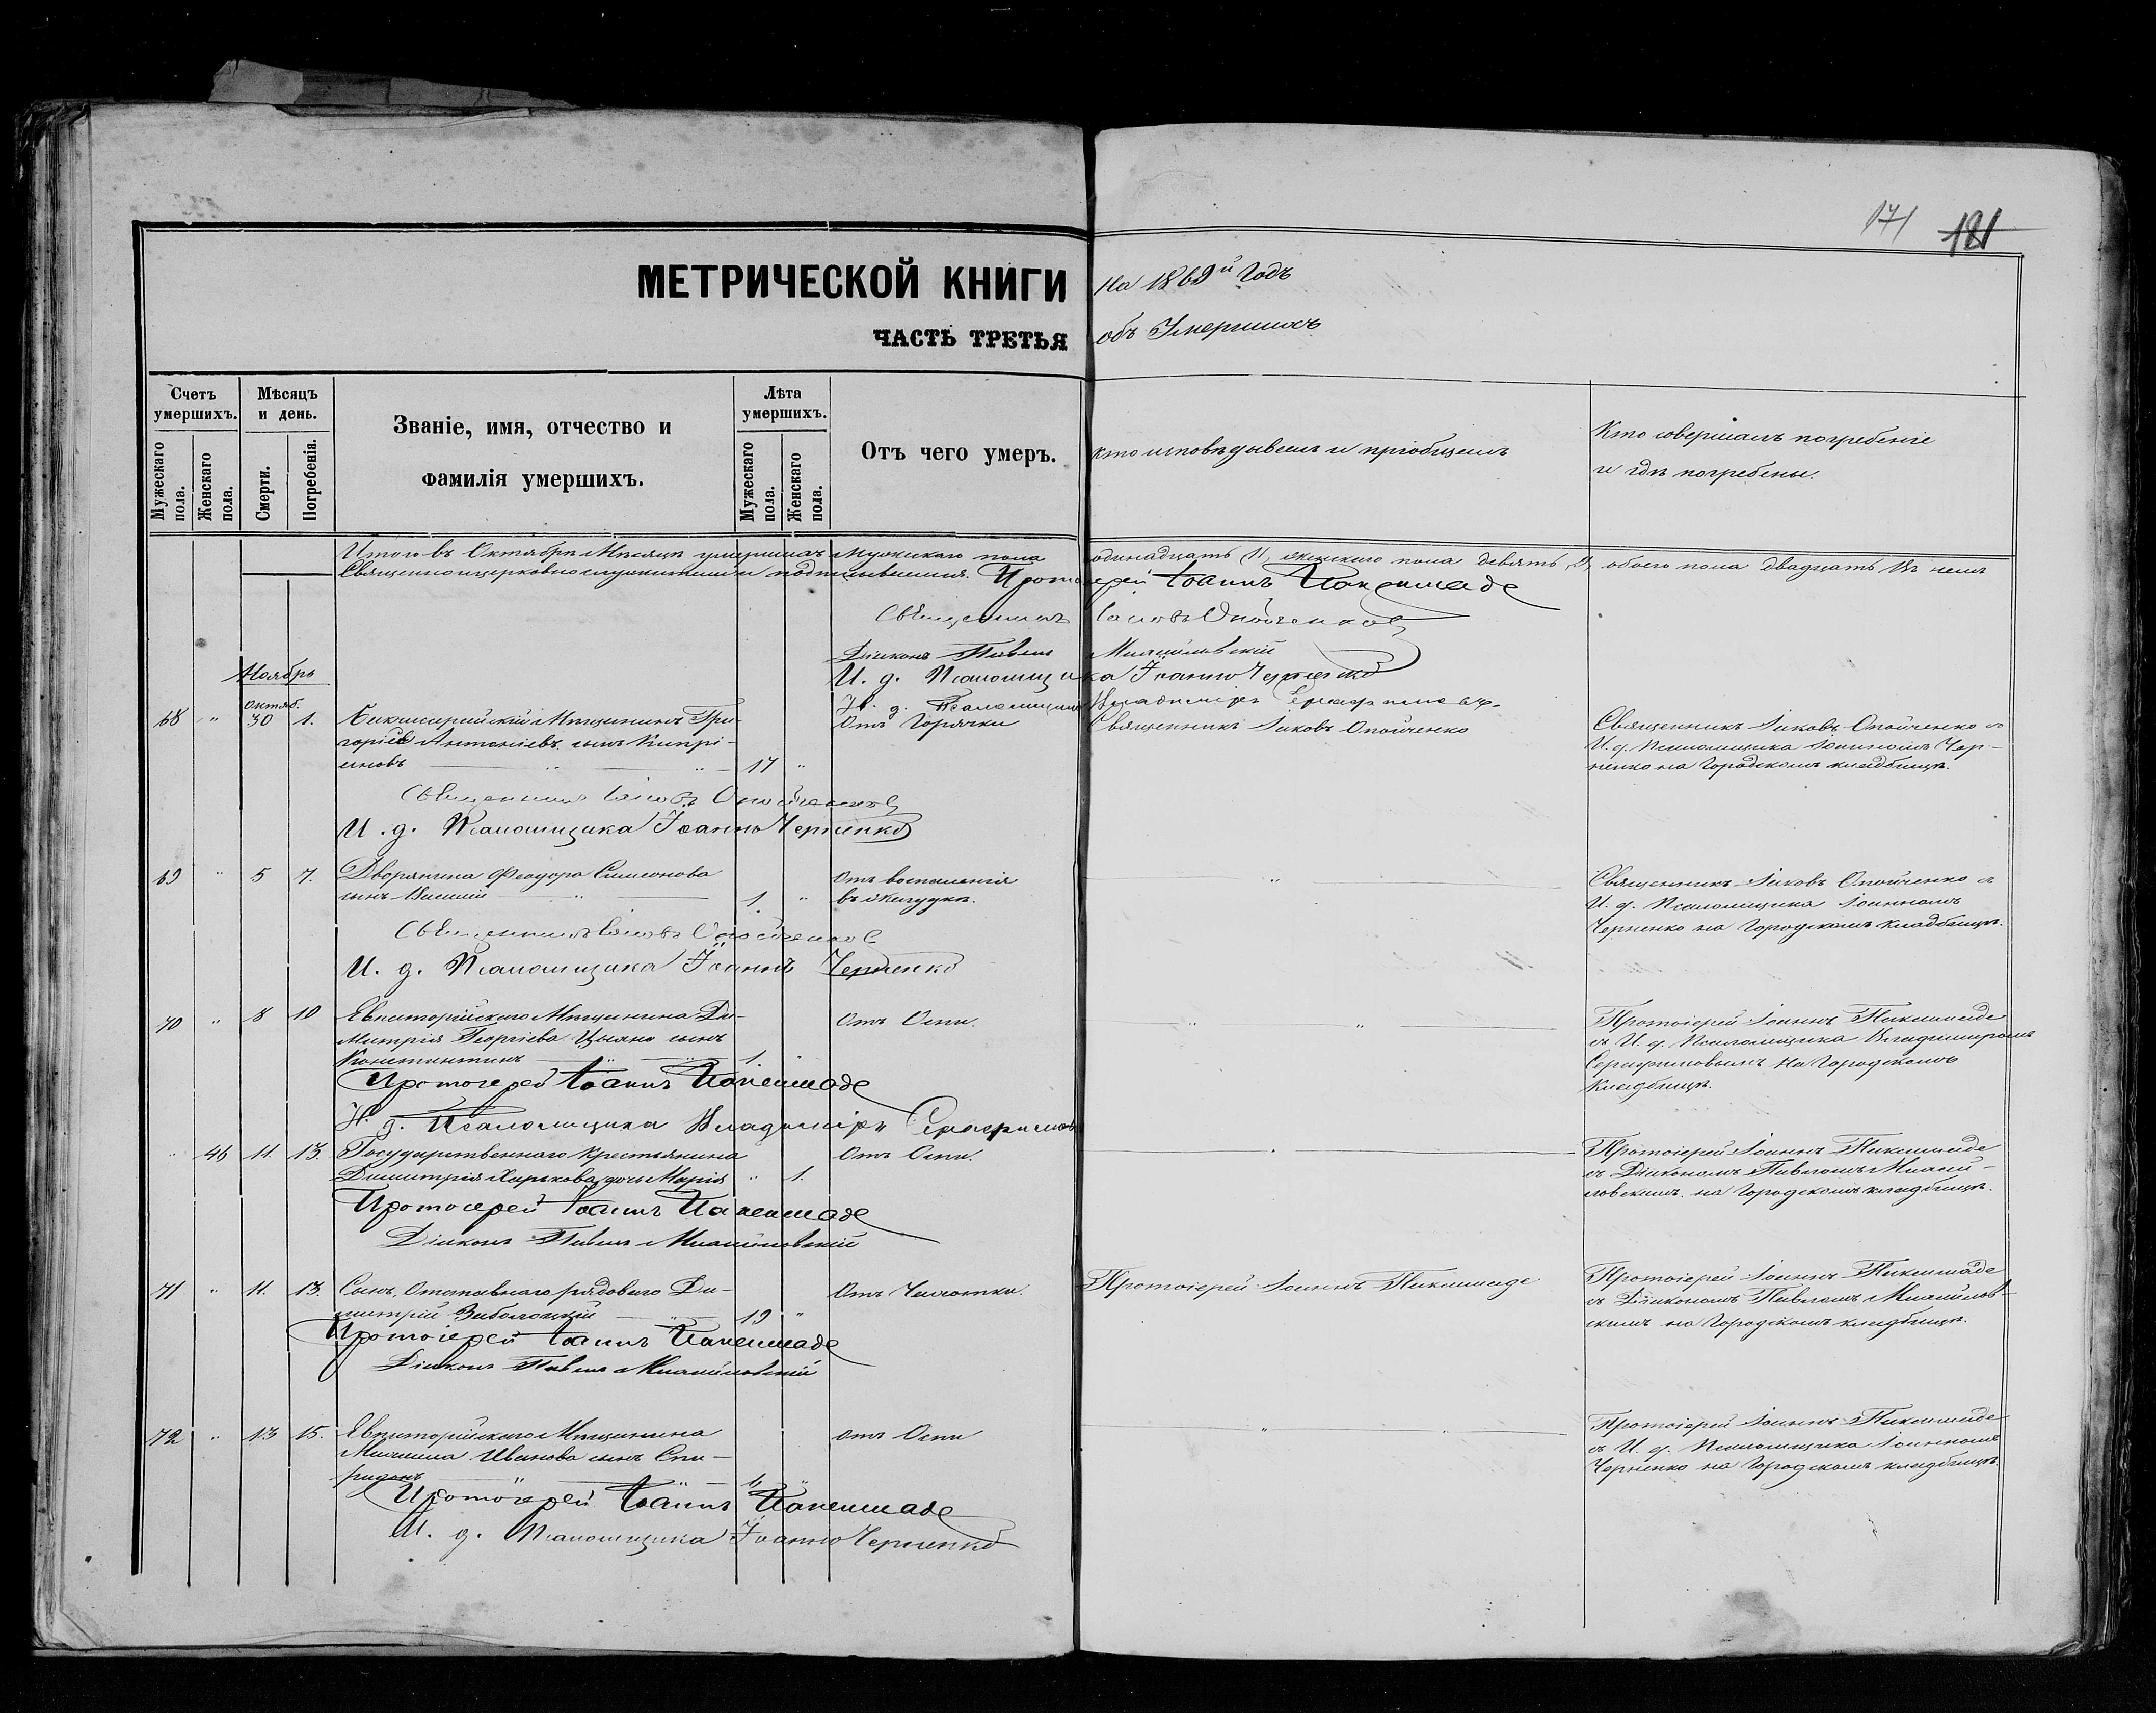 171 181
МЕТРИЧЕСКОЙ КНИГИ на 1869й Годъ
ЧАСТЬ ТРЕТЬЯ объ Умершихъ
Счетъ умершихъ.
Мужескаго пола.
Женскаго пола.
Мѣсяцъ и день.
Смерти.
Погребенія.
Званіе, имя, отчество и
фамилія умершихъ.
Лѣта умершихъ.
Мужескаго пола.
Женскаго пола.
Отъ чего умеръ.
кто исповѣдывалъ и пріобщалъ
Кто совершалъ погребеніе
и гдѣ погребены.
Итого въ Октябрѣ Мѣсяцѣ умершихъ мужескаго пола одинадцать 11, женскаго пола девять, 9, обоего пола двадцать
Священноицерковнослужители подписывались. Протоіерей Іоаннъ
Священникъ Іаковъ Опойченко
Діаконъ Павелъ
И. д. Псаломщика Іоаннъ Черненко
И. д. Псаломщика Владиміръ Серафимовъ
Ноябрь
Октяб.
68 " 30 1. Мѣщанинъ Гри- Отъ Горячки Священникъ Іаковъ Опойченко Священникъ Іаковъ Опойченко съ
горій Антоніевъ сынъ Кипрі- И. д. Псаломщика Іоанномъ Чер-
ановъ " " 17 " ненко на Городскомъ кладбищѣ.
Священникъ Іаковъ Опойченко
И. д. Псаломщика Іоаннъ Черненко
69 " 5 7. Дворянина Феодора Симеонова Отъ воспаленія " Священникъ Іаковъ Опойченко съ
сынъ Василій " 1. " въ желудкѣ. И. д. Псаломщика Іоанномъ
Черненко на Городскомъ кладбищѣ.
Священникъ Іаковъ Опойченко
И. д. Псаломщика Іоаннъ Черненко
70 " 8 10 Евпаторійскаго Мѣщанина Ди- Отъ Оспы. " " Протоіерей Іоаннъ
митрія Георгіева сынъ съ И. д. Псаломщика Владиміромъ
Константинъ " " 1. " Серафимовымъ на Городскомъ
кладбищѣ.
Протоіерей Іоаннъ
И. д. Псаломщика Владиміръ Серафимовъ
" 46 11. 13. Государственнаго крестьянина Отъ Оспы. Протоіерей Іоаннъ
Димитрія Харькова дочь Марія " 1. съ Діакономъ Павломъ
на Городскомъ кладбищѣ.
Протоіерей Іоаннъ
Діаконъ Павелъ
71 " 11. 13. Сынъ Отставнаго рядоваго Ди- Отъ Чахотки. Протоіерей Іоаннъ Протоіерей Іоаннъ
митрій " 19 " съ Діакономъ Павломъ
на Городскомъ кладбищѣ.
Протоіерей Іоаннъ
Діаконъ Павелъ
72 " 13 15. Евпаторійскаго Мѣщанина отъ Оспы " Протоіерей Іоаннъ
Михаила Иванова сынъ Спи- съ И. д. Псаломщика Іоанномъ
ридонъ " " " Черненко на Городскомъ кладбищѣ.
Протоіерей Іоаннъ
И. д. Псаломщика Іоаннъ Черненко